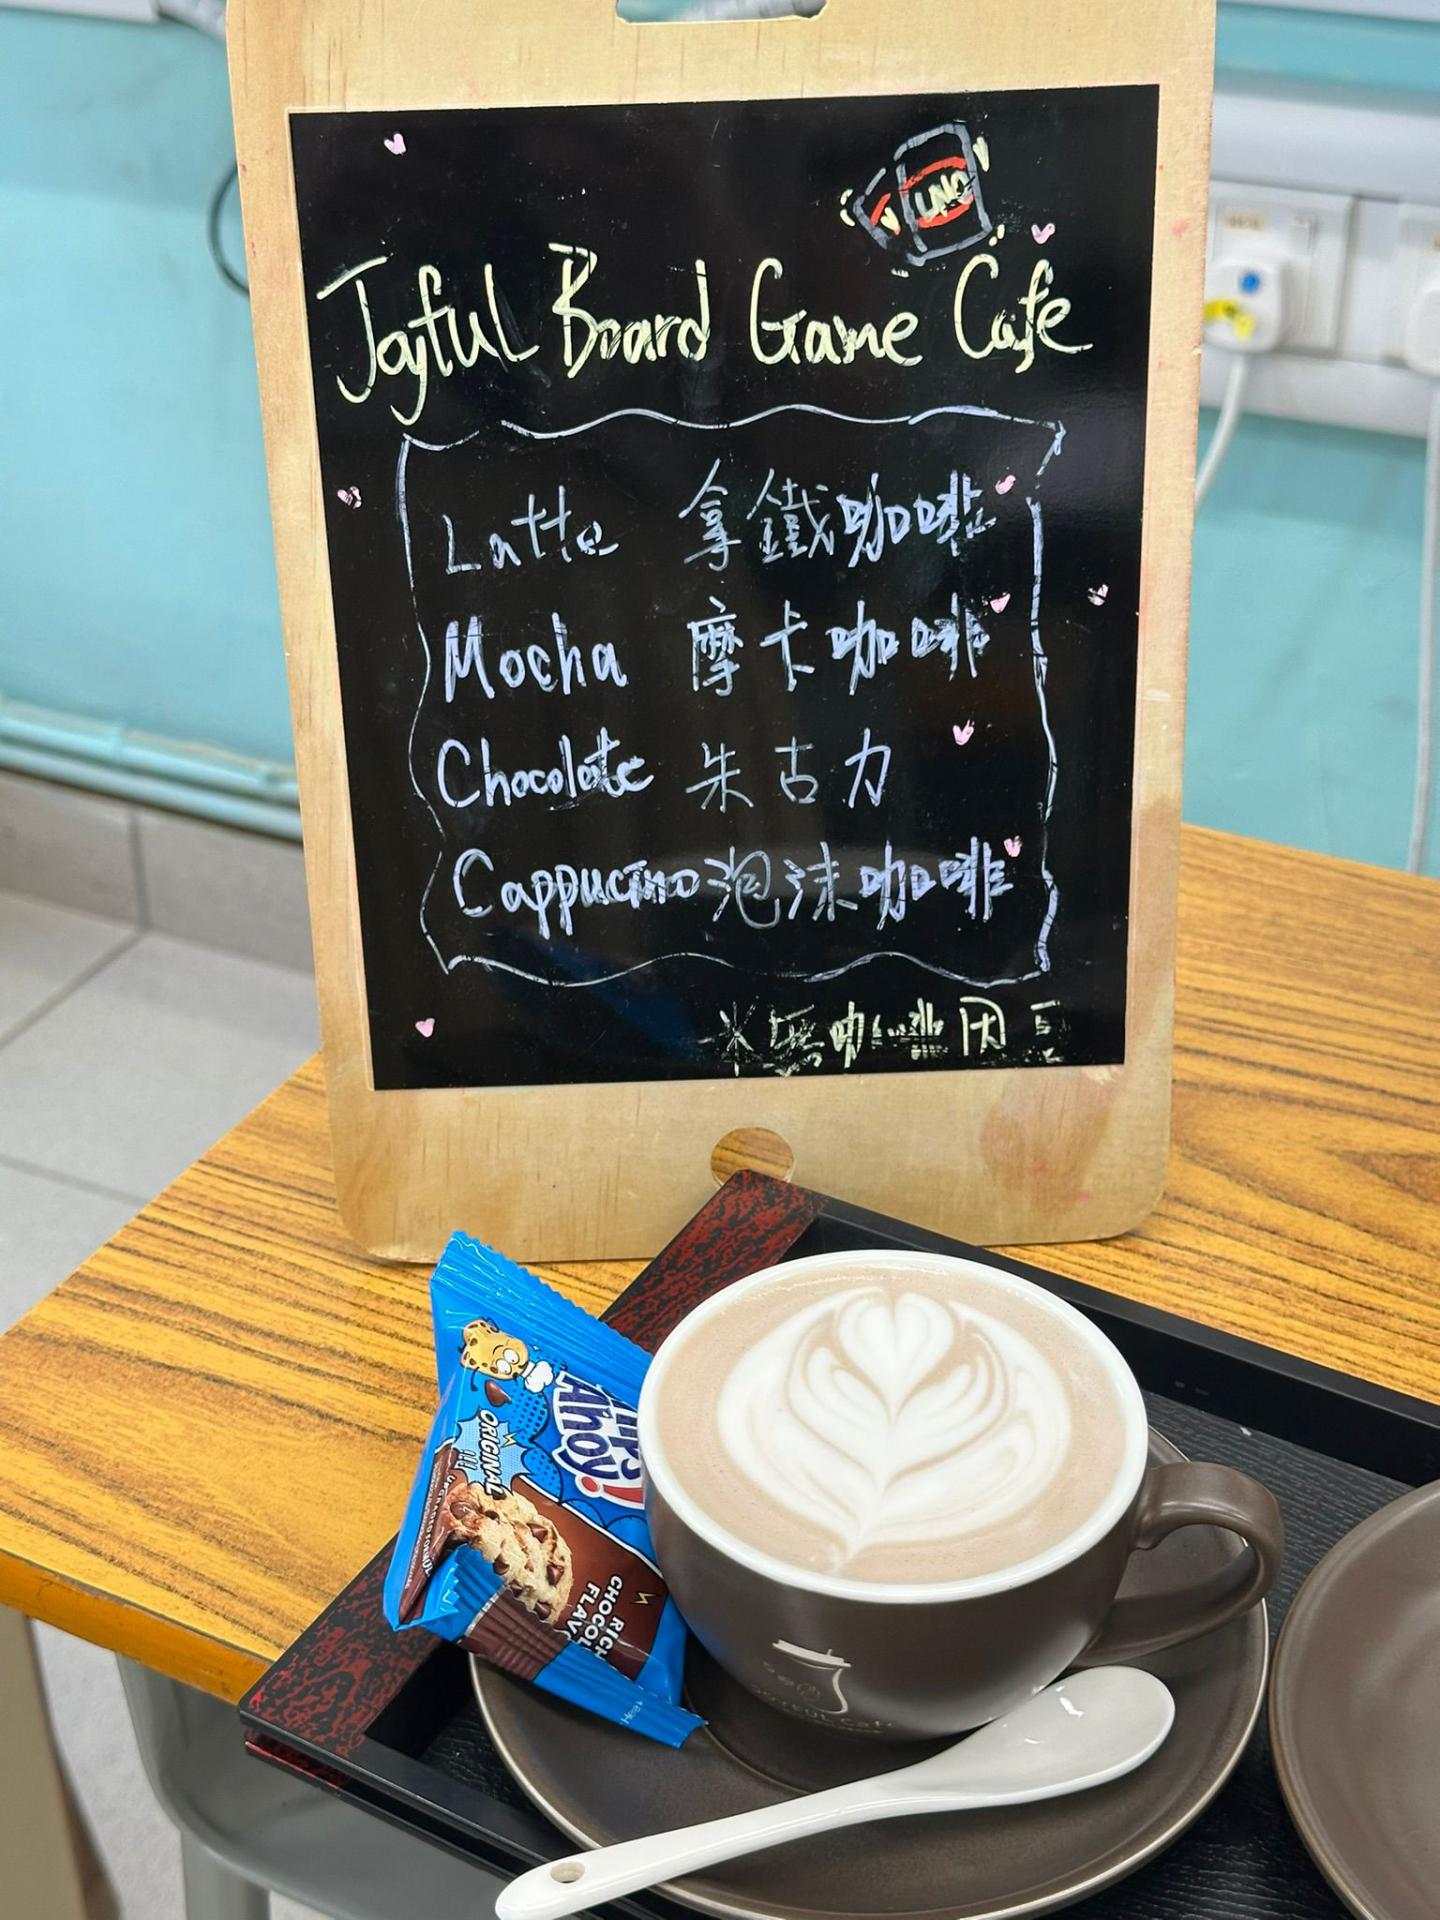 UNO
Joyful Board Game Cafe
Latte 拿鐵咖啡
Mocha 摩卡咖啡
Chocolate 朱古力
Cappucino 泡沫咖啡
咖啡
Ahoy!
ORIGINAL
RICH